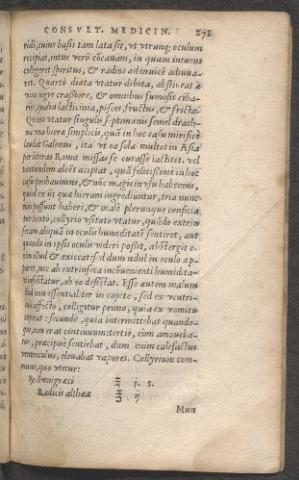 CONSVLT. MEDICIN. 271
ridi, cuius basis tam lata sit, vt vtrunq; oculum
recipiat, intus verò cōcauam, in quam intuens
colligeret spiritus, & radios adinuicē adiuua-
ret. Quartò diæta vtatur debita, abstineat à
vino nigro crassiore, & omnibus fumosis ciba-
rijs, qualia lacticinia, pisces, fructus, & fricta.
Quinto vtatur singulis septimanis semel drach-
ma vna hieræ simplicis, quā in hoc casu mirificè
laudat Galenus, ita vt ea sola multos in Asia
per literas Roma missas se curasse iactitet. vel
tantundem aloës accipiat, quā felicissimè in hoc
casu probauimus, & nūc magis in vsu habemus,
quod ex ijs qua hieram ingrediuntur, tria nunc
non possunt haberi, & malè plerunque conficia
tur. Sextò, collyrio vsitato vtatur, quādo extrin
secam aliquā in oculis humiditatē sentiret, aut
quando in ipsis oculis videri possit, abstergit e-
nim illud & exiccat: sed dum nihil in oculo ap
paret, nec ab extrinseca incōuenienti humidita-
te infestatur, ab eo desistat. Esse autem malum
illud non essentialiter in capite, sed ex ventri-
culo affecto, colligitur primo, quia ex vomitu
iuuatur: secundò, quia intermittebat quando-
que, non erat continuum: tertio, cùm amouebá-
tur, præcipuè sentiebat, dum enim calefactus
ventriculus, eleuabat vapores. Collyrium com-
mune, quo vtetur:
℞. Fœnigræci ℥ i. s.
Radicis altheæ ℥ ij
Mun